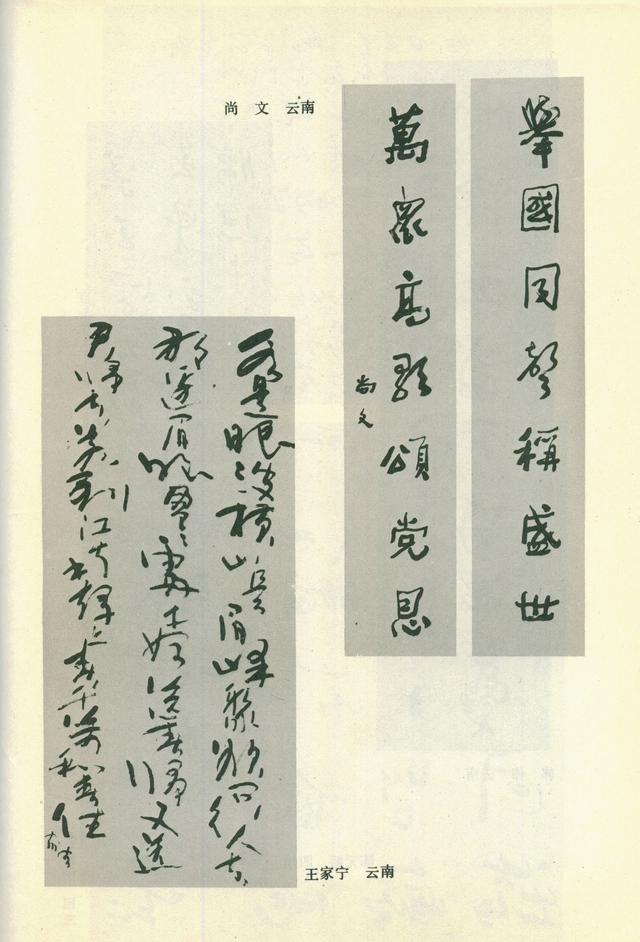 尚文 云南
舉國同聲稱盛世
萬眾高歌頌党恩
尚文
水是眼波橫山是眉峰聚欲问行人去
那边眉眼盈盈處才始送春歸又送
君歸去若到江南赶上春千万和春住
王家宁 云南